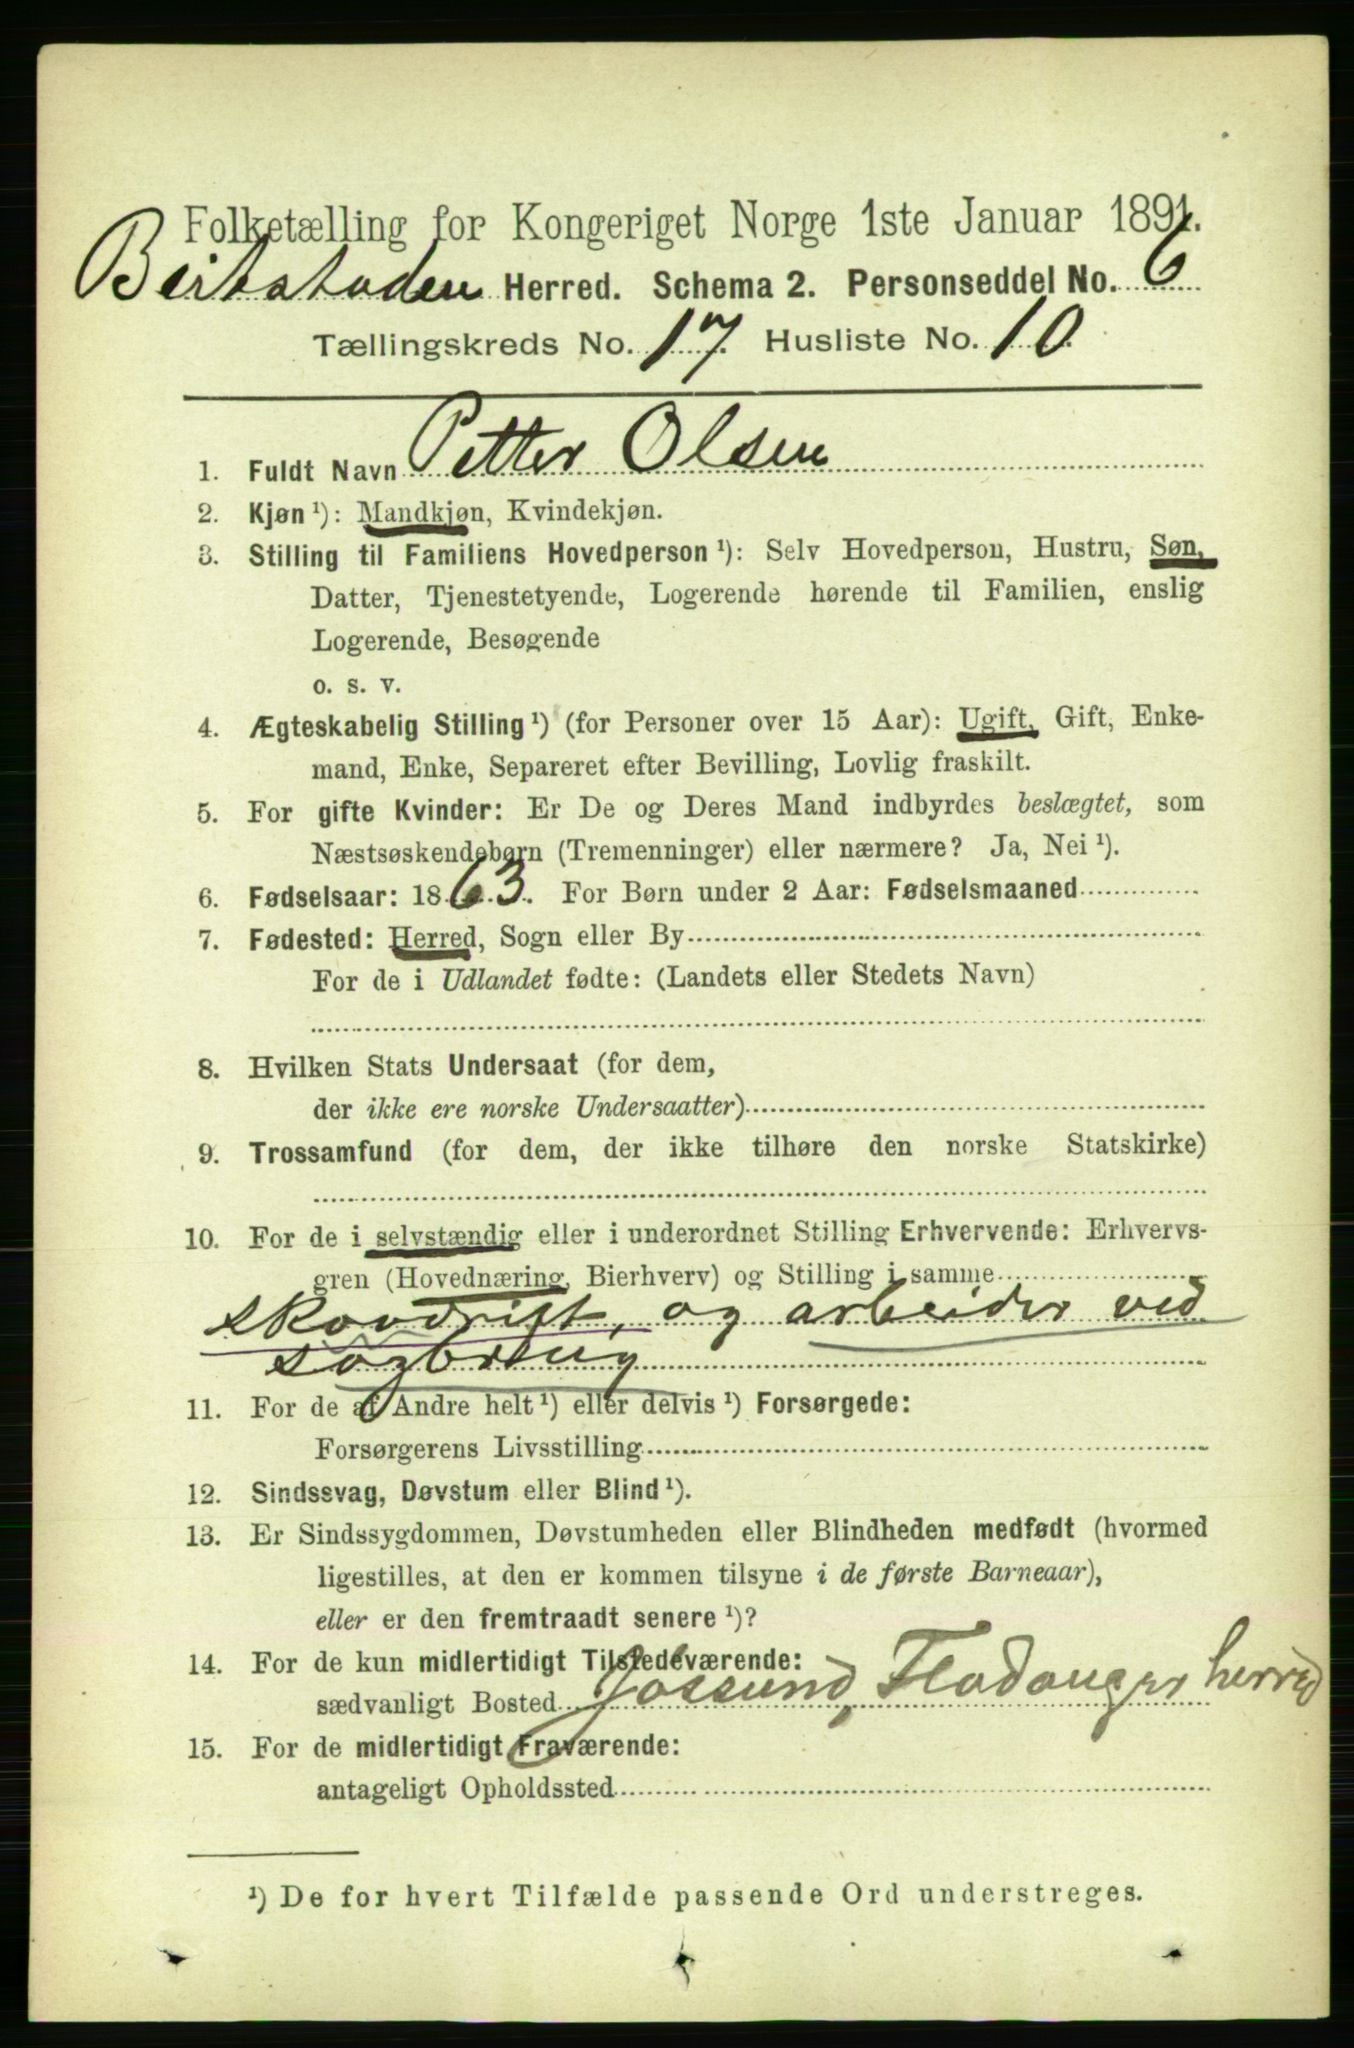 Folketælling for Kongeriget Norge 1ste Januar 1891.
Beitstaden Herred. Schema 2. Personseddel No. 6
Tællingskreds No. 17. Husliste No. 10.
1. Fuldt Navn Petter Olsen
2. Kjøn ¹): Mandkjøn, Kvindekjøn.
3. Stilling til Familiens Hovedperson ¹): Selv Hovedperson, Hustru, Søn,
Datter, Tjenestetyende, Logerende hørende til Familien, enslig
Logerende, Besøgende
o. s. v.
4. Ægteskabelig Stilling ¹) (for Personer over 15 Aar): Ugift, Gift, Enke-
mand, Enke, Separeret efter Bevilling, Lovlig fraskilt.
5. For gifte Kvinder: Er De og Deres Mand indbyrdes beslægtet, som
Næstsøskendebørn (Tremenninger) eller nærmere? Ja, Nei ¹).
6. Fødselsaar: 1863. For Børn under 2 Aar: Fødselsmaaned
7. Fødested: Herred, Sogn eller By
For de i Udlandet fødte: (Landets eller Stedets Navn)
8. Hvilken Stats Undersaat (for dem,
der ikke ere norske Undersaatter)
9. Trossamfund (for dem, der ikke tilhøre den norske Statskirke)
10. For de i selvstændig eller i underordnet Stilling Erhvervende: Erhvervs-
gren (Hovednæring, Bierhverv) og Stilling i samme
skovdrift, og arbeider ved
sagbrug
11. For de af Andre helt ¹) eller delvis ¹) Forsørgede:
Forsørgerens Livsstilling
12. Sindssvag, Døvstum eller Blind ¹).
13. Er Sindssygdommen, Døvstumheden eller Blindheden medfødt (hvormed
ligestilles, at den er kommen tilsyne i de første Barneaar),
eller er den fremtraadt senere ¹)?
14. For de kun midlertidigt Tilstedeværende:
sædvanligt Bosted Jøssund, Fladanger herred
15. For de midlertidigt Fraværende:
antageligt Opholdssted
¹) De for hvert Tilfælde passende Ord understreges.